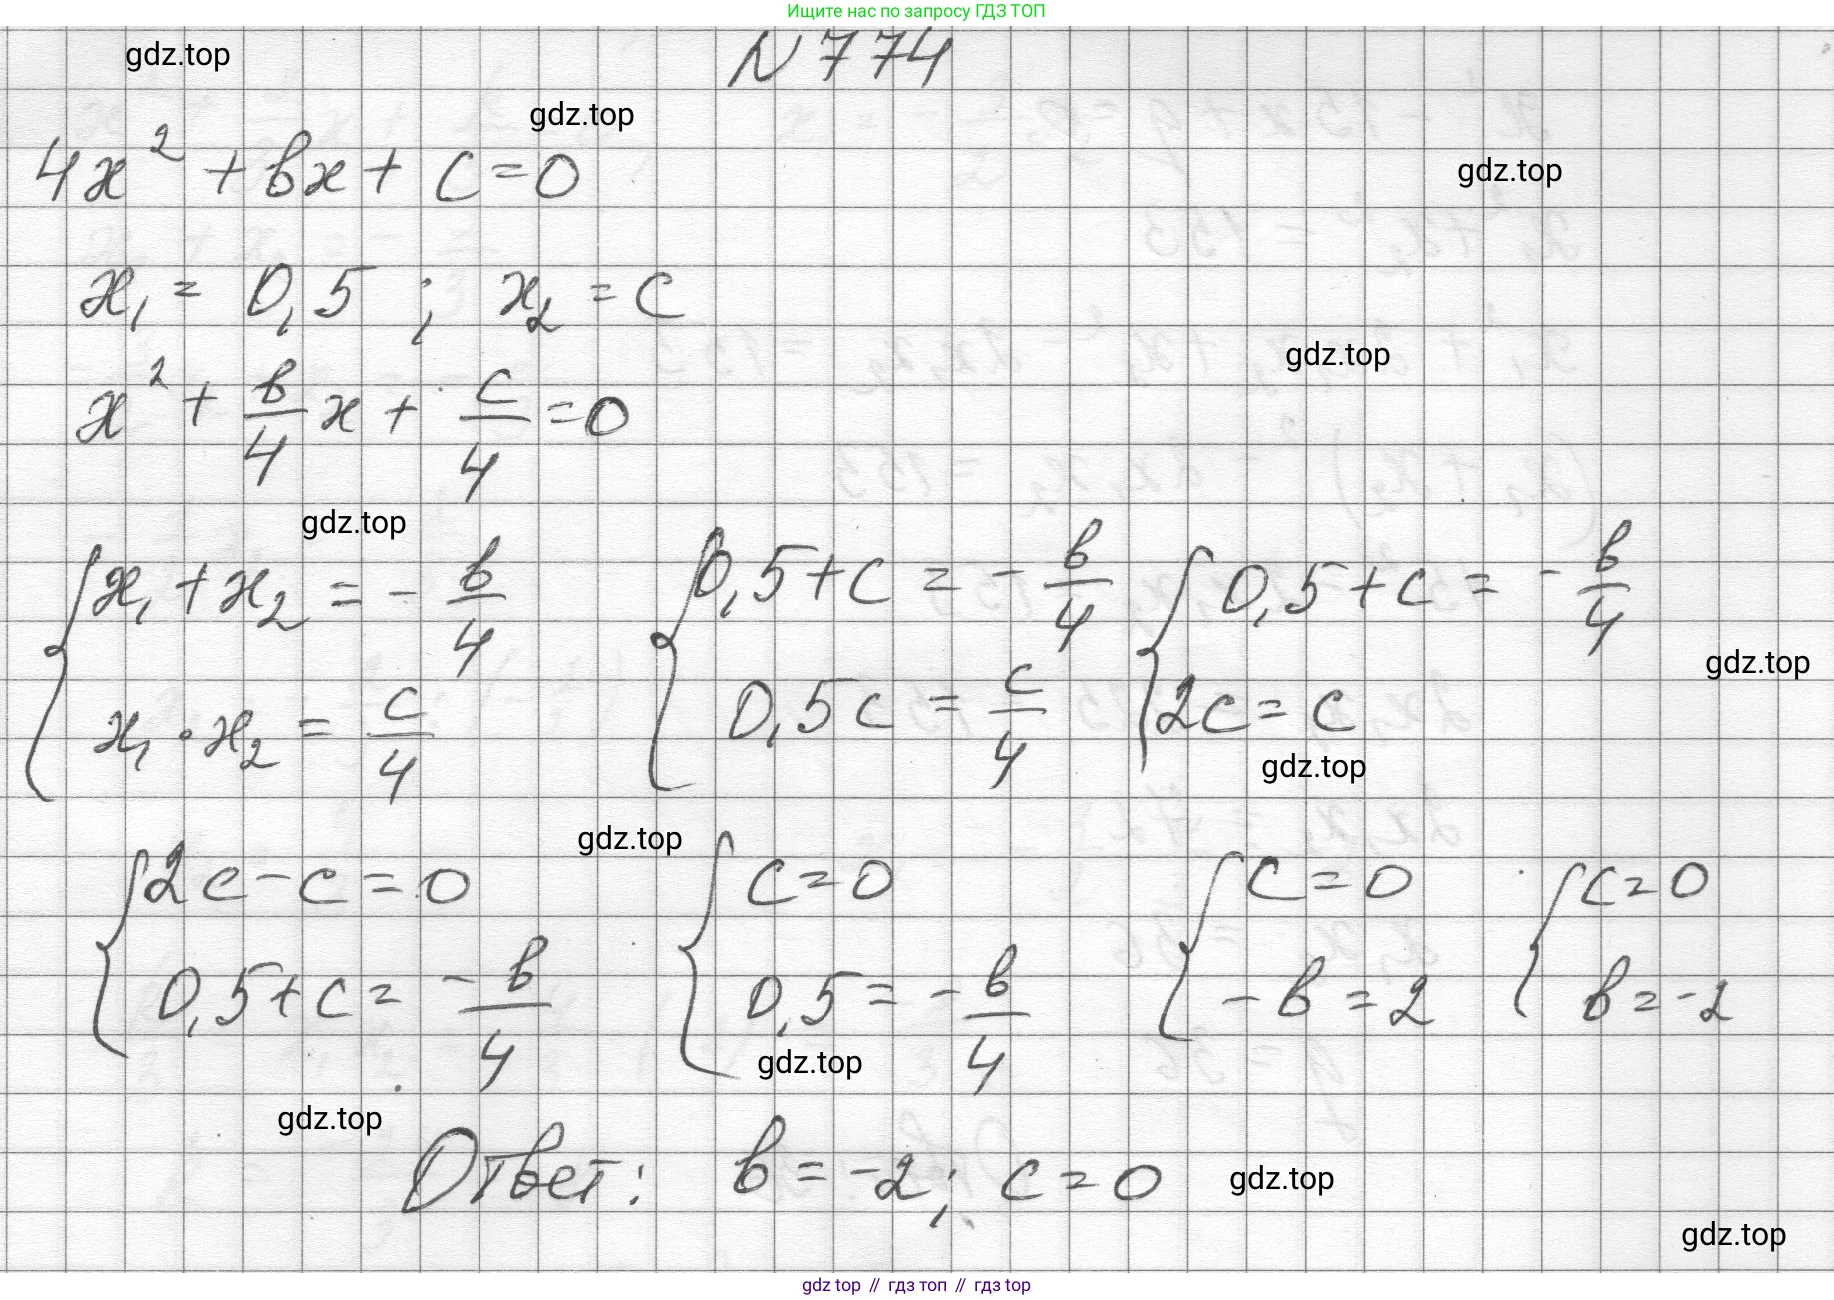 Ищите нас по запросу ГДЗ ТОП
N 774
gdz.top
gdz.top
4x² + bx + c = 0
gdz.top
x₁ = 0,5 ; x₂ = c
gdz.top
x² + b/4 x + c/4 = 0
gdz.top
{ x₁ + x₂ = - b/4 { 0,5 + c = - b/4 { 0,5 + c = - b/4
gdz.top
x₁ · x₂ = c/4 0,5c = c/4 2c = c
gdz.top
gdz.top
{ 2c - c = 0 { c = 0 { c = 0 { c = 0
0,5 + c = - b/4 0,5 = - b/4 - b = 2 b = -2
gdz.top
gdz.top
Ответ: b = -2; c = 0
gdz.top
gdz.top
gdz top // гдз топ // гдз top